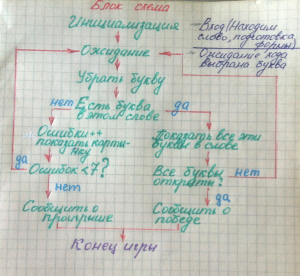 Блок схема
Инициализация
– Вход (Находим
слово, подготовка
формы)
Ожидание
– Ожидание хода
выбрана буква
Убрать букву
нет
Есть буква
в этом слове
да
Ошибки++
показать карти-
нку
Показать все эти
буквы в слове
да
Ошибок < 7?
Все буквы
открыты?
нет
нет
да
Сообщить о
проигрыше
Сообщить о
победе
Конец игры